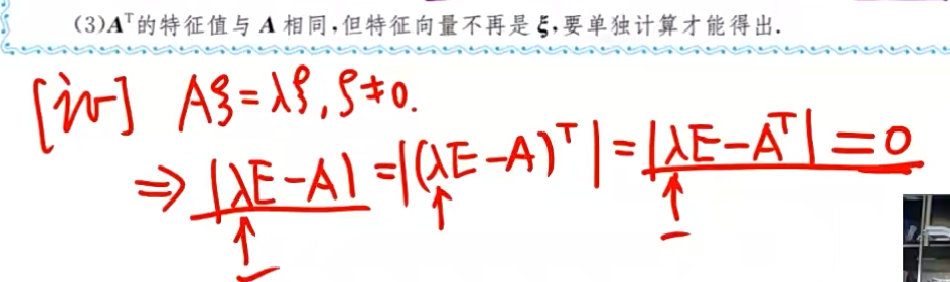 (3)Aᵀ的特征值与 A 相同,但特征向量不再是 ξ,要单独计算才能得出.
[证] Aξ=λξ, ξ≠0.
⇒ |λE-A| =|(λE-A)ᵀ| = |λE-Aᵀ| = 0